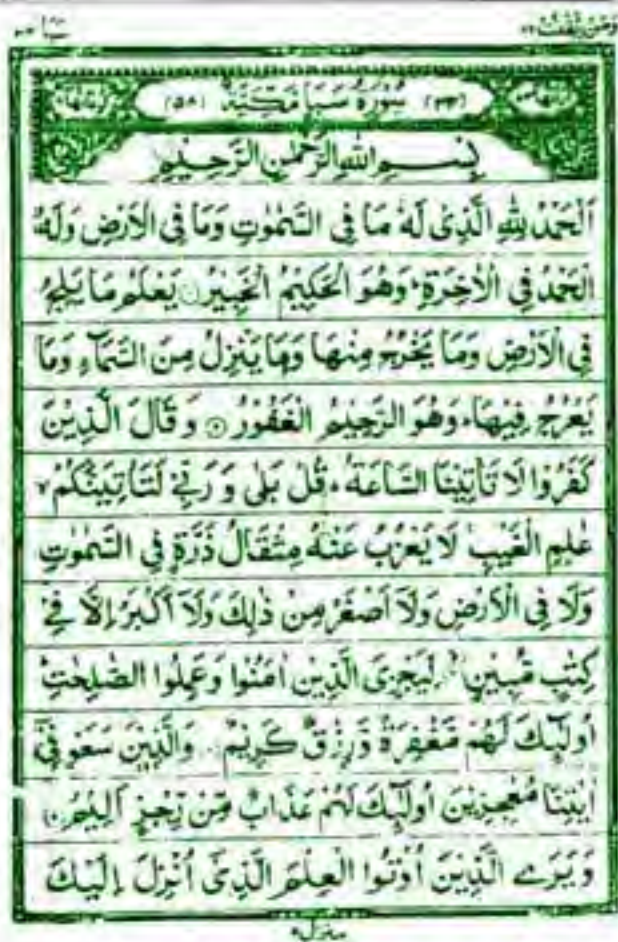 وَمَنْ يَّقْنُتْ ٢٢
سَبَا ٣٤
(٣٤) سُوْرَةُ سَبَاٍ مَّكِّيَّةٌ (٥٨)
بِسْمِ اللّٰهِ الرَّحْمٰنِ الرَّحِيْمِ
اَلْحَمْدُ لِلّٰهِ الَّذِىْ لَهٗ مَا فِى السَّمٰوٰتِ وَمَا فِى الْاَرْضِ وَلَهُ
الْحَمْدُ فِى الْاٰخِرَةِ ؕ وَهُوَ الْحَكِيْمُ الْخَبِيْرُ يَعْلَمُ مَا يَلِجُ
فِى الْاَرْضِ وَمَا يَخْرُجُ مِنْهَا وَمَا يَنْزِلُ مِنَ السَّمَآءِ وَمَا
يَعْرُجُ فِيْهَا ؕ وَهُوَ الرَّحِيْمُ الْغَفُوْرُ وَقَالَ الَّذِيْنَ
كَفَرُوْا لَا تَاْتِيْنَا السَّاعَةُ ؕ قُلْ بَلٰى وَرَبِّىْ لَتَاْتِيَنَّكُمْ ۙ
عٰلِمِ الْغَيْبِ ۚ لَا يَعْزُبُ عَنْهُ مِثْقَالُ ذَرَّةٍ فِى السَّمٰوٰتِ
وَلَا فِى الْاَرْضِ وَلَاۤ اَصْغَرُ مِنْ ذٰلِكَ وَلَاۤ اَكْبَرُ اِلَّا فِىْ
كِتٰبٍ مُّبِيْنٍ ۙ لِّيَجْزِىَ الَّذِيْنَ اٰمَنُوْا وَعَمِلُوا الصّٰلِحٰتِ ؕ
اُولٰٓئِكَ لَهُمْ مَّغْفِرَةٌ وَّرِزْقٌ كَرِيْمٌ وَالَّذِيْنَ سَعَوْ فِىْۤ
اٰيٰتِنَا مُعٰجِزِيْنَ اُولٰٓئِكَ لَهُمْ عَذَابٌ مِّنْ رِّجْزٍ اَلِيْمٌ
وَيَرَى الَّذِيْنَ اُوْتُوا الْعِلْمَ الَّذِىْۤ اُنْزِلَ اِلَيْكَ
منزل ٥